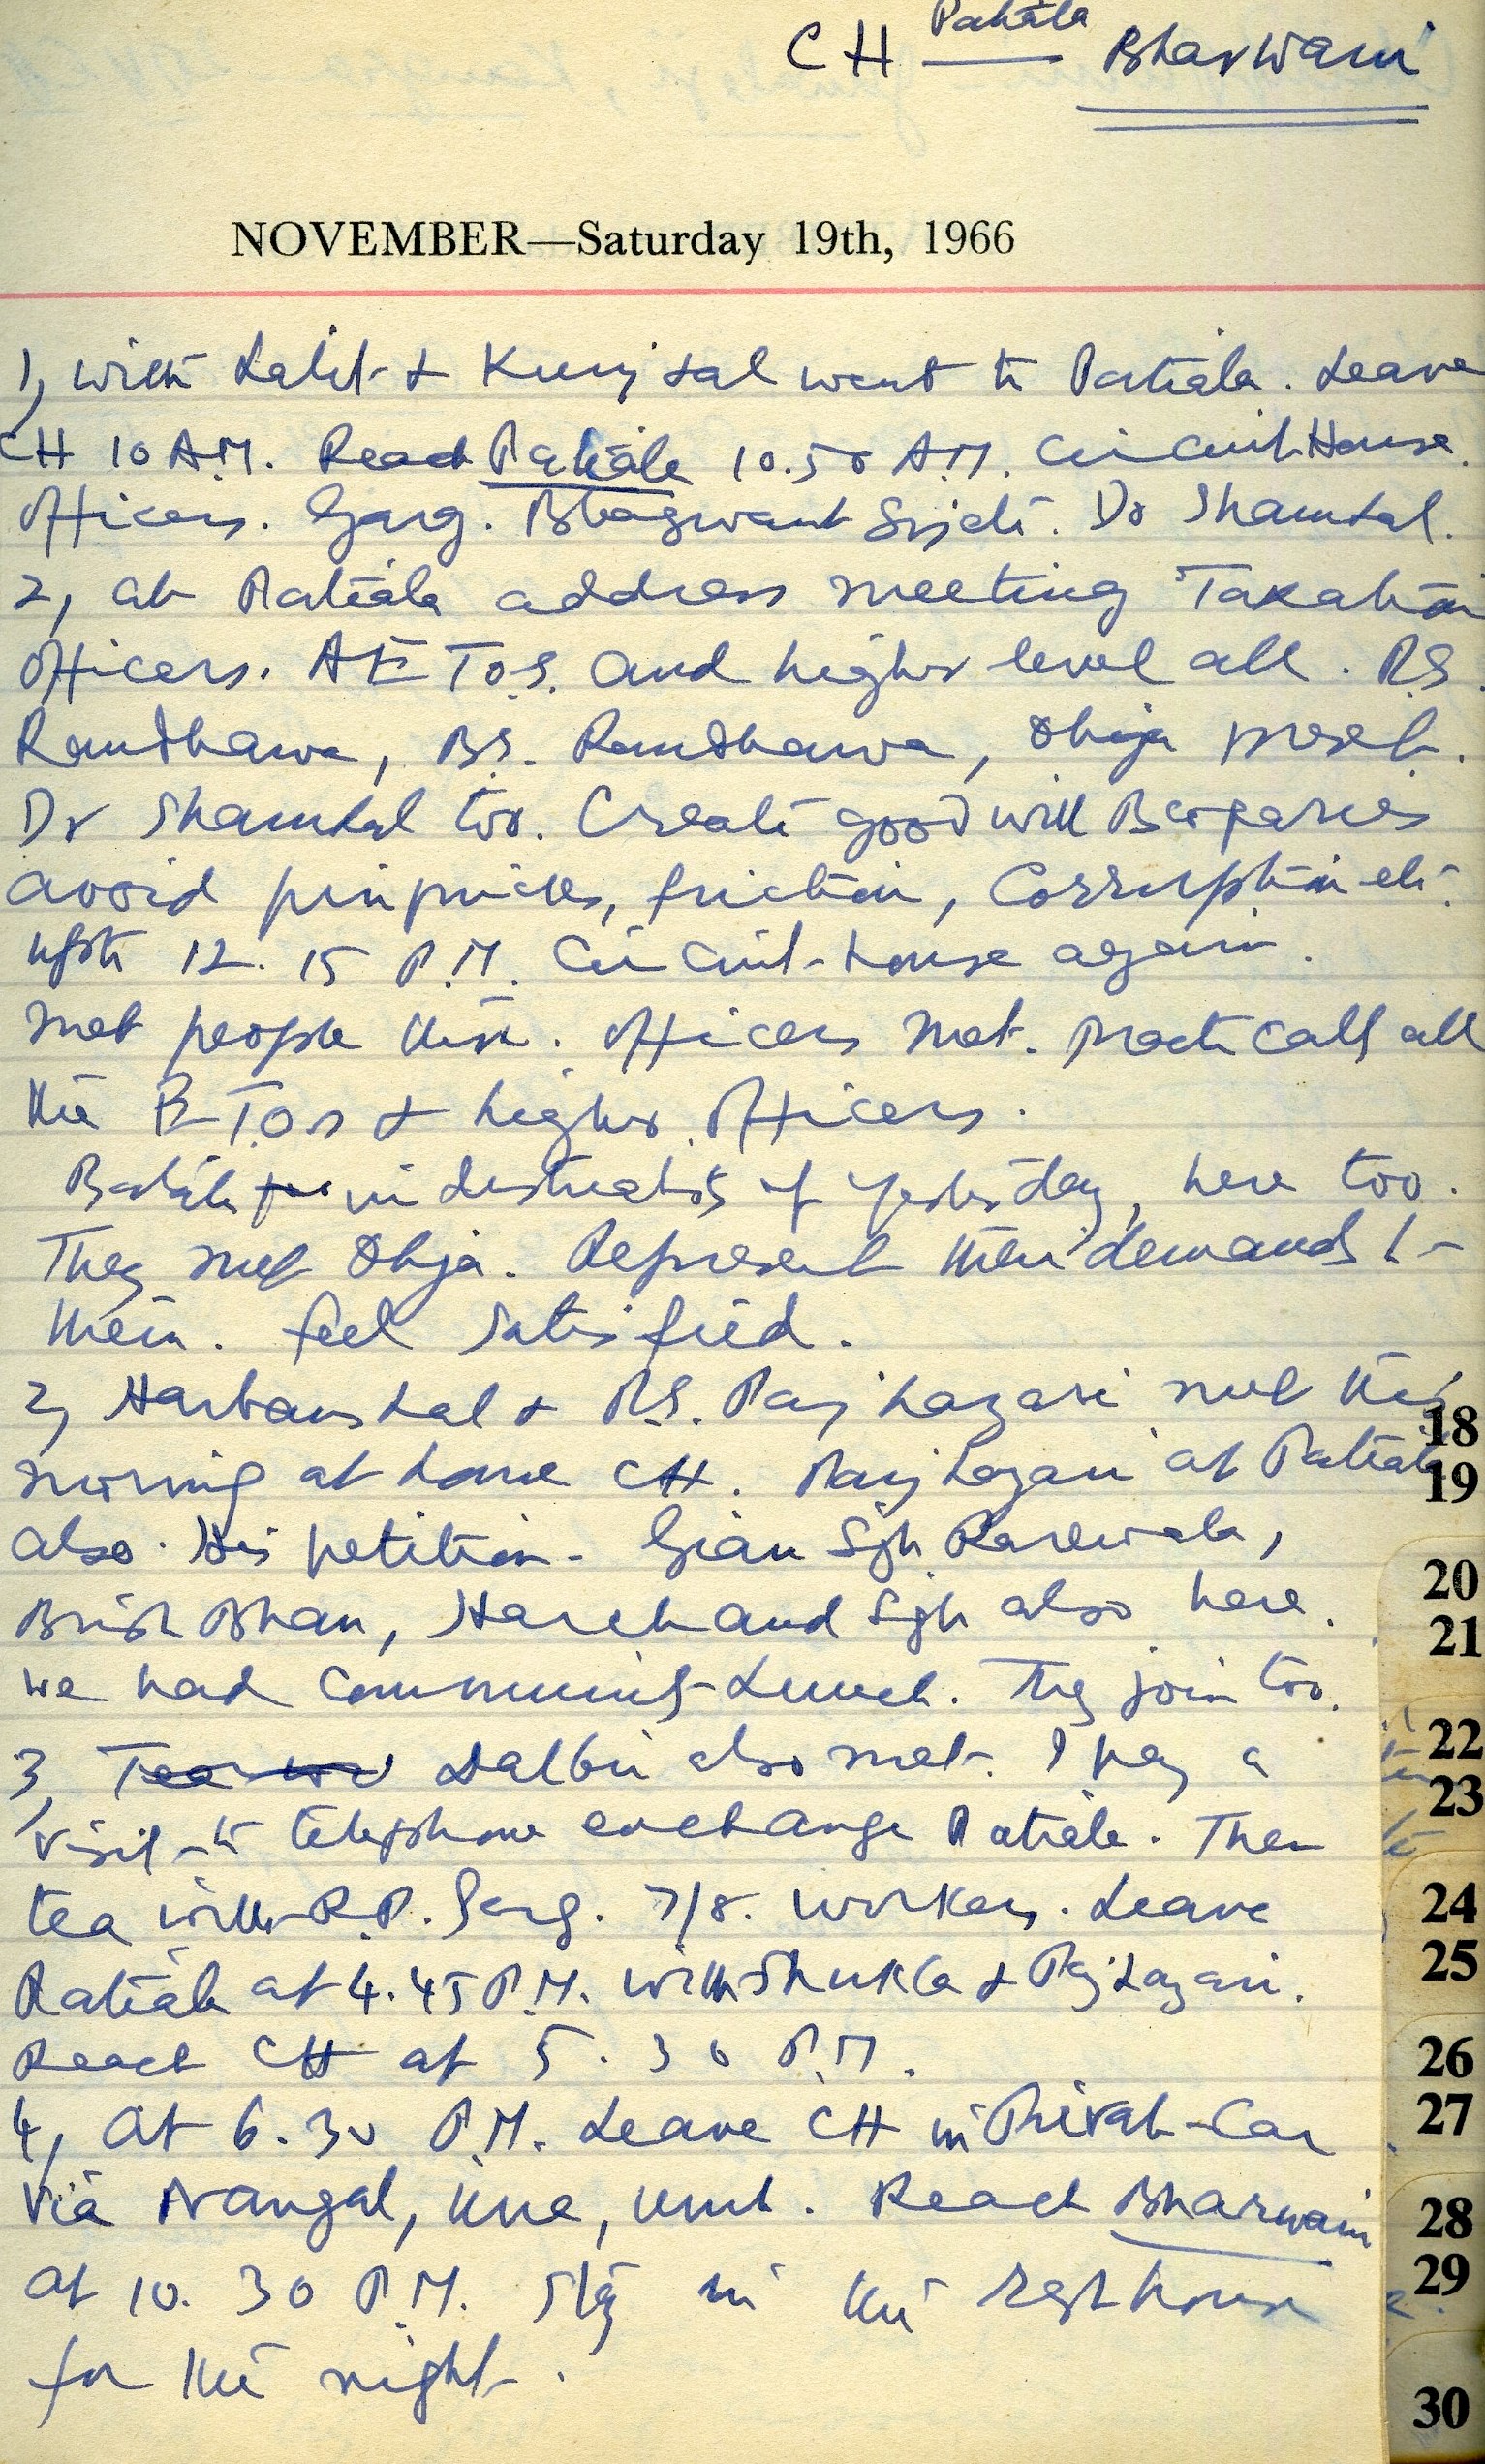 Patiala
CH — Bharwain
NOVEMBER—Saturday 19th, 1966
1, with Lalit & Kunj Lal went to Patiala. Leave
CH 10 A.M. Reach Patiala 10.50 A.M. Circuit House.
Officers. Garg. Bhagwant Singh. Dr Sham Lal.
2, at Patiala address meeting Taxation
officers. AETOS. and higher level all. R.S.
Randhawa, B.S. Randhawa, Ohja present.
Dr Sham Lal too. Create good will
avoid pinpricks, friction, Corruption etc.
upto 12.15 P.M. Circuit-house again.
met people there. Officers met. Practically all
the E.T.Os & higher officers.
Batala for industrialists of yesterday, here too.
They met Ohja. Represent their demands to
them. feel satisfied.
2, Harbans Lal & R.S. Raj Lagari met this
morning at home CH. Raj Lagari at Patiala
also. His petition. Gian Sgh Rarewala,
Brish Bhan, Harchand Sgh also here.
we had community Lunch. They join too.
3, Tea Dalbir also met. I pay a
visit to telephone exchange Patiala. Then
tea with R.P. Garg. 7/8. workers. Leave
Patiala at 4.45 P.M. with Shukla & Raj Lagari.
Reach CH at 5.30 P.M.
4, At 6.30 P.M. Leave CH in Private Car
via Nangal, Una, Amb. Reach Bharwain
at 10.30 P.M. Stay in the rest house
for the night.
18
19
20
21
22
23
24
25
26
27
28
29
30